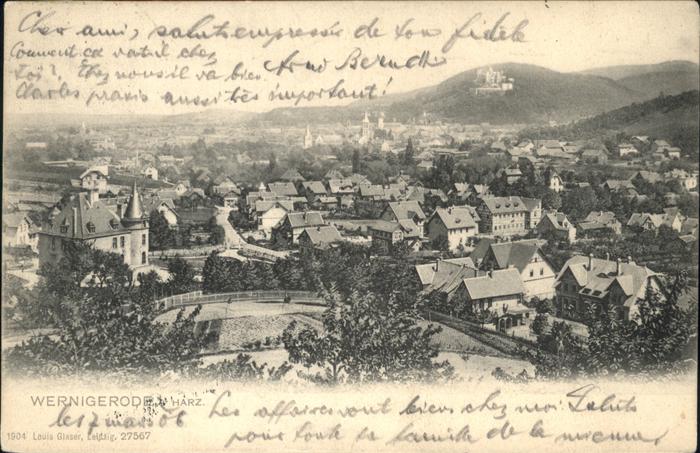 Cher ami, salut empressés de ton fidèle
Comment ca va t'il chez
Toi? Chez nous il va bien. Arno Berndt
Charles praxis aussi très important!
WERNIGERODE A. HARZ.
le 7 mars 06 Les affaires vont bien chez moi. Saluts
pour toute ta famille de la mienne
1904 Louis Glaser, Leipzig. 27567